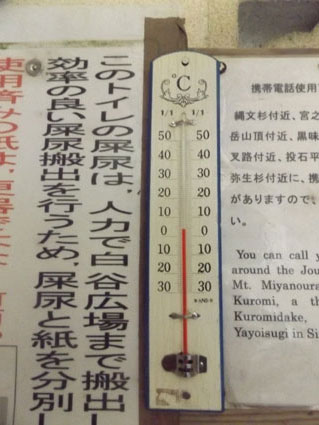 このトイレの屎尿は、人力で白谷広場まで搬出し
効率の良い屎尿搬出を行うため、屎尿と紙を分別し
使用済みの紙は、
°C
1/1 1/1
50 50
40 40
30 30
20 20
10 10
0 0
10 10
20 20
30 30
携帯電話使用
縄文杉付近、宮之
岳山頂付近、黒味
叉路付近、投石平
弥生杉付近に、携
がありますので、
い。
You can call y
around the Jou
Mt. Miyanoura
Kuromi, a th
Kuromidake,
Yayoisugi in Si